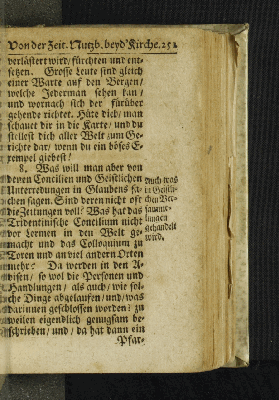 Von der Zeit. Nutzb. beyd' Kirche. 251
verlästert wird / fürchten und ent-
setzen. Grosse Leute sind gleich
einer Warte auf den Bergen /
welche Jederman sehen kan /
und wornach sich der fürüber
gehende richtet. Hüte dich / man
schauet dir in die Karte / und du
stellest dich aller Welt zum Ge-
richte dar / wenn du ein böses E-
xempel giebest!
8. Was will man aber von
denen Concilien und Geistlichen
Unterredungen in Glaubens sa-
chen sagen. Sind deren nicht oft
die Zeitungen voll? Was hat das
Tridentinische Concilium nicht
vor Lermen in den Welt ge-
macht und das Colloquium zu
Toren und an viel andern Orten
mehr: Da werden in den A-
visen / so wol die Personen und
Handlungen / als auch / wie sol-
che Dinge abgelaufen / und / was
darinnen geschlossen worden: zu
weilen eigendlich genugsam be-
schrieben / und / da hat dann ein
Pfar-
Auch was
in Geistli-
chen Ver-
samm-
lungen
gehandelt
wird,